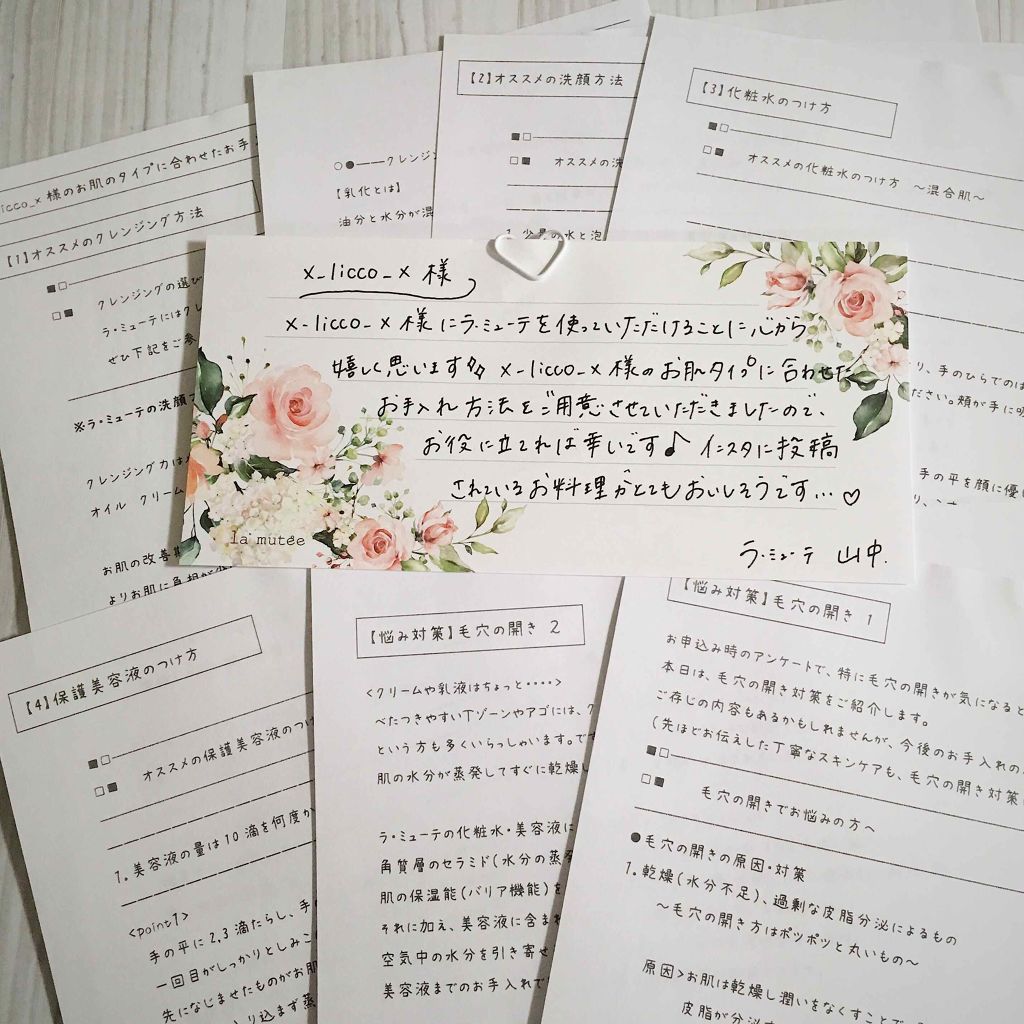 【2】オススメの洗顔方法
■□
□■ オススメの洗
1. 少量の水と泡
【3】化粧水のつけ方
■□
□■ オススメの化粧水のつけ方 ～混合肌～
り、手のひらでのは
ださい。頬が手に吸
手の平を顔に優し
○●――クレンジン
【乳化とは】
油分と水分が混
icco_x 様のお肌のタイプに合わせたお手
【1】オススメのクレンジング方法
■□
□■ クレンジングの選び
ラ・ミューテにはクレ
ぜひ下記をご参
※ラ・ミューテの洗顔
クレンジング力は
オイル クリーム
お肌の改善
よりお肌に負担が
x_licco_x 様
x_licco_x 様にラ・ミューテを使っていただけることに心から
嬉しく思います♪♪ x_licco_x 様のお肌タイプに合わせた
お手入れ方法をご用意させていただきましたので、
お役に立てれば幸いです♪ インスタに投稿
されているお料理がとてもおいしそうです…♡
ラ・ミューテ 山中.
la mutée
【4】保護美容液のつけ方
■□
□■ オススメの保護美容液のつけ
1. 美容液の量は10滴を何度か
<point1>
手の平に2,3滴たらし、手の
一回目がしっかりとしみこ
先になじませたものがお肌
り込まず蒸
【悩み対策】毛穴の開き 2
<クリームや乳液はちょっと・・・・>
べたつきやすいTゾーンやアゴには、ク
という方も多くいらっしゃいます。です
肌の水分が蒸発してすぐに乾燥し
ラ・ミューテの化粧水・美容液に
角質層のセラミド(水分の蒸発
肌の保湿能(バリア機能)を
それに加え、美容液に含まれ
空気中の水分を引き寄せ
美容液までのお手入れで
【悩み対策】毛穴の開き 1
お申込み時のアンケートで、特に毛穴の開きが気になると
本日は、毛穴の開き対策をご紹介します。
ご存じの内容もあるかもしれませんが、今後のお手入れの
(先ほどお伝えした丁寧なスキンケアも、毛穴の開き対策
■□
□■ 毛穴の開きでお悩みの方へ
●毛穴の開きの原因・対策
1. 乾燥(水分不足)、過剰な皮脂分泌によるもの
～毛穴の開き方はポツポツと丸いもの～
原因>お肌は乾燥し潤いをなくすことで、
皮脂が分泌